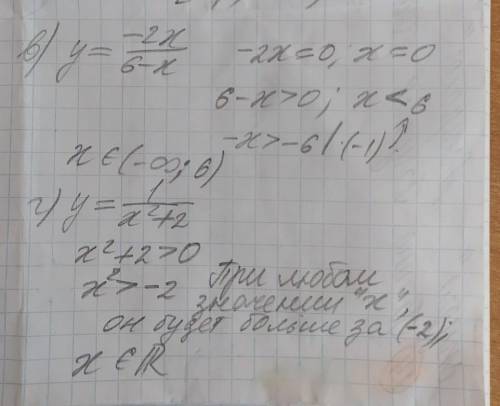 в) y = -2x / 6-x   -2x=0; x=0
6-x>0; x<6
-x>-6 | ·(-1)
x ∈ (-∞; 6)
г) y = 1 / x²+2
x²+2>0
x²>-2   При любом
значении "x",
он будет больше за (-2);
x ∈ ℝ